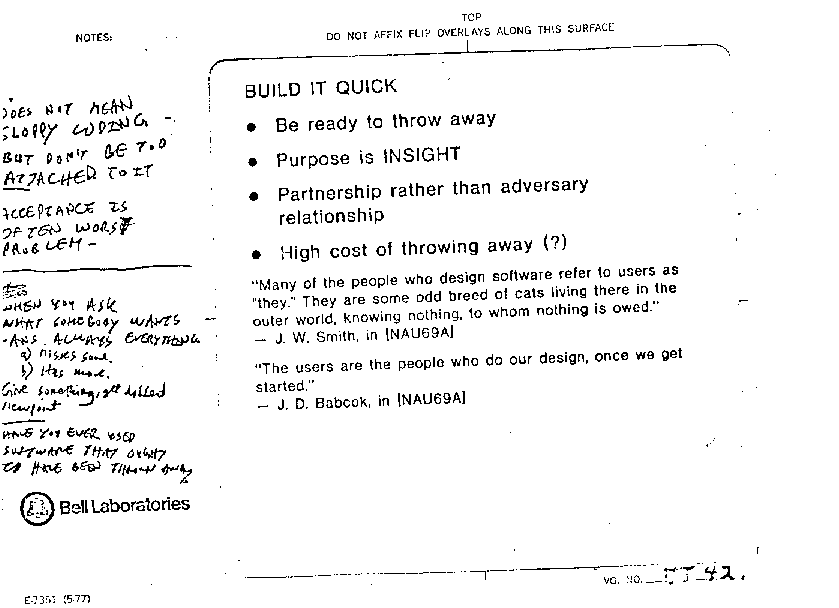 TOP
DO NOT AFFIX FLIP OVERLAYS ALONG THIS SURFACE
NOTES:
DOES NOT MEAN
SLOPPY CODING -
BUT DON'T BE TOO
ATTACHED TO IT
ACCEPTANCE IS
OFTEN WORST
PROBLEM -
WHEN YOU ASK
WHAT SOMEBODY WANTS
-ANS. ALWAYS EVERYTHING
a) Misses some.
b) Has more.
Give something,
viewpoint
HAVE YOU EVER USED
SOFTWARE THAT OUGHT
TO HAVE BEEN THROWN AWAY
Bell Laboratories
E-7351 (5-77)
BUILD IT QUICK
● Be ready to throw away
● Purpose is INSIGHT
● Partnership rather than adversary
relationship
● High cost of throwing away (?)
"Many of the people who design software refer to users as
"they." They are some odd breed of cats living there in the
outer world, knowing nothing, to whom nothing is owed."
— J. W. Smith, in [NAU69A]
"The users are the people who do our design, once we get
started."
— J. D. Babcok, in [NAU69A]
VG. NO. 42.